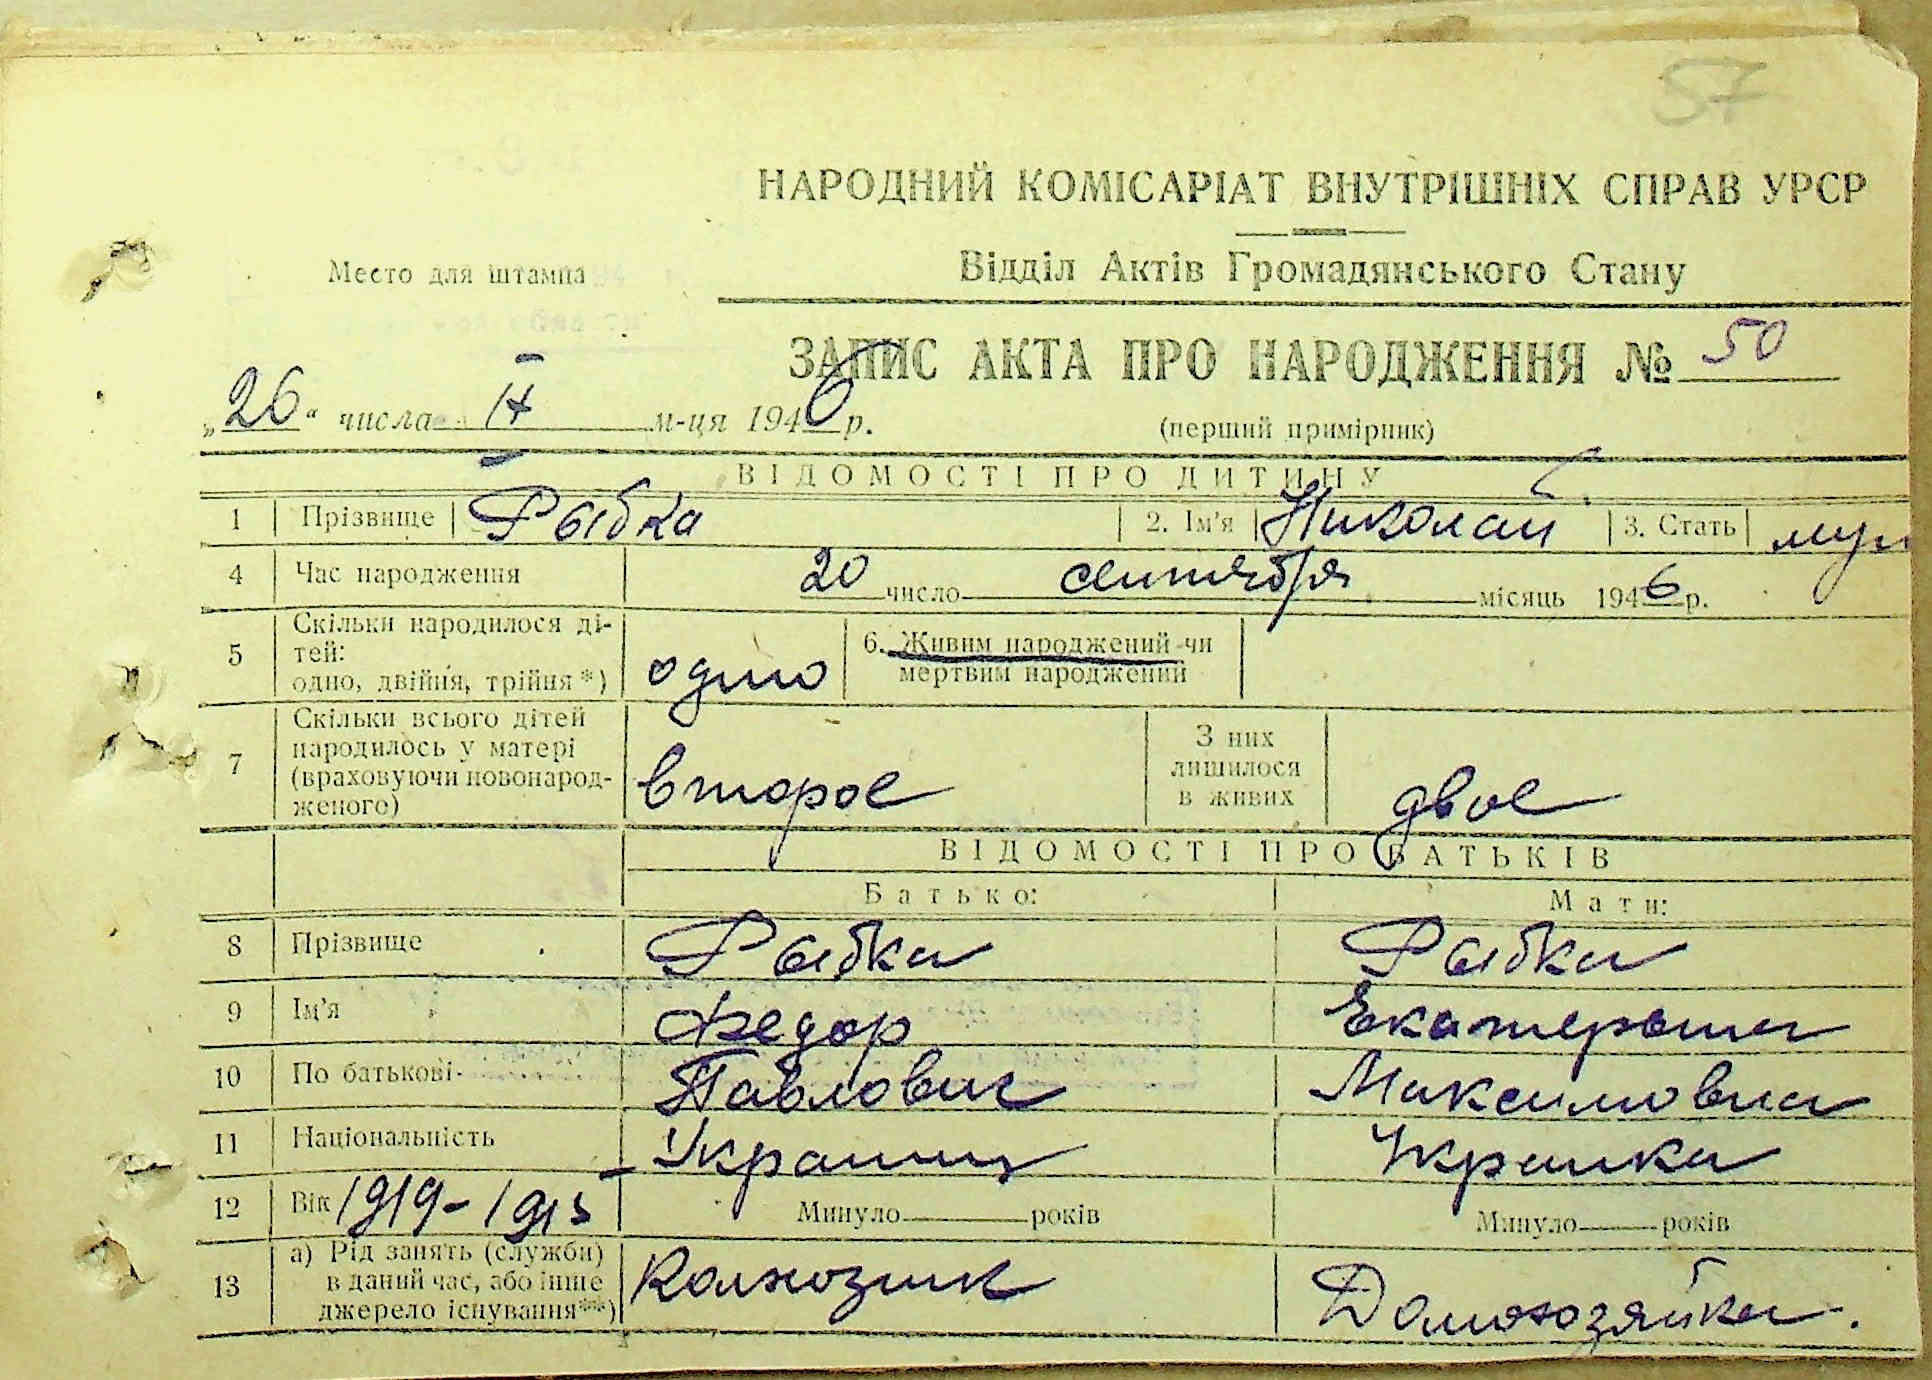 57
НАРОДНИЙ КОМІСАРІАТ ВНУТРІШНІХ СПРАВ УРСР
Место для штампа
Відділ Актів Громадянського Стану
ЗАПИС АКТА ПРО НАРОДЖЕННЯ № 50
„26“ числа IX м-ця 1946 р.
(перший примірник)
ВІДОМОСТІ ПРО ДИТИНУ
1 Прізвище Рыбка 2. Ім'я Николай 3. Стать муж
4 Час народження 20 число сентября місяць 1946 р.
5 Скільки народилося ді-
тей:
одно, двійня, трійня*) одно
6. Живим народжений чи
мертвим народжений
7 Скільки всього дітей
народилось у матері
(враховуючи новонарод-
женого) второе
З них
лишилося
в живих двое
ВІДОМОСТІ ПРО БАТЬКІВ
Батько: Мати:
8 Прізвище Рыбка Рыбка
9 Ім'я Федор Екатерына
10 По батькові Павлович Максимовна
11 Національність Украинц Украинка
12 Вік 1919-1913 Минуло рокiв Минуло років
13 а) Рід занять (служби)
в даний час, або інше
джерело існування**) Колхозник Домохозяйка.